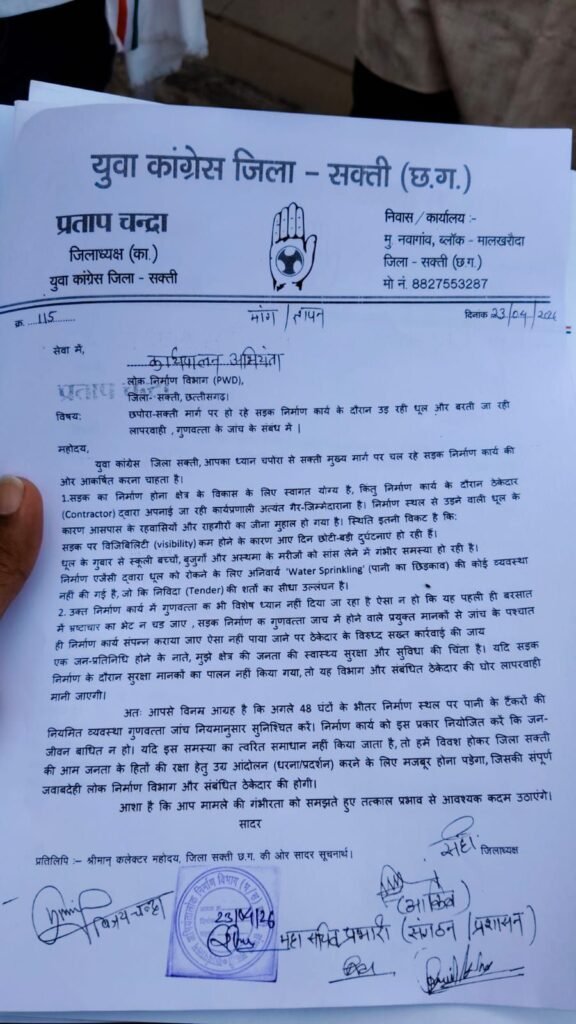 युवा कांग्रेस जिला – सक्ती (छ.ग.)
प्रताप चन्द्रा
जिलाध्यक्ष (का.)
युवा कांग्रेस जिला - सक्ती
निवास / कार्यालय :-
मु. नवागांव, ब्लॉक - मालखरौदा
जिला - सक्ती (छ.ग.)
मो नं. 8827553287
क्र. ....115........
मांग / ज्ञापन
दिनांक 23/04/2026
सेवा में,
कार्यपालन अभियंता
लोक निर्माण विभाग (PWD),
जिला- सक्ती, छत्तीसगढ़।
प्रताप चन्द्रा
विषय: छपोरा-सक्ती मार्ग पर हो रहे सड़क निर्माण कार्य के दौरान उड़ रही धूल और बरती जा रही
लापरवाही , गुणवत्ता के जांच के संबंध मे |
महोदय,
युवा कांग्रेस जिला सक्ती, आपका ध्यान चपोरा से सक्ती मुख्य मार्ग पर चल रहे सड़क निर्माण कार्य की
ओर आकर्षित करना चाहता है।
1.सड़क का निर्माण होना क्षेत्र के विकास के लिए स्वागत योग्य है, किंतु निर्माण कार्य के दौरान ठेकेदार
(Contractor) द्वारा अपनाई जा रही कार्यप्रणाली अत्यंत गैर-जिम्मेदाराना है। निर्माण स्थल से उड़ने वाली धूल के
कारण आसपास के रहवासियों और राहगीरों का जीना मुहाल हो गया है। स्थिति इतनी विकट है कि:
सड़क पर विजिबिलिटी (visibility) कम होने के कारण आए दिन छोटी-बड़ी दुर्घटनाएं हो रही हैं।
धूल के गुबार से स्कूली बच्चों, बुजुर्गों और अस्थमा के मरीजों को सांस लेने में गंभीर समस्या हो रही है।
निर्माण एजेंसी द्वारा धूल को रोकने के लिए अनिवार्य 'Water Sprinkling' (पानी का छिड़काव) की कोई व्यवस्था
नहीं की गई है, जो कि निविदा (Tender) की शर्तों का सीधा उल्लंघन है।
2. उक्त निर्माण कार्य में गुणवत्ता क भी विशेष ध्यान नहीं दिया जा रहा है ऐसा न हो कि यह पहली ही बरसात
में भ्रष्टाचार का भेट न चड़ जाए , सड़क निर्माण क गुणवत्ता जाच मे होने वाले प्रयुक्त मानकों से जांच के पश्चात
ही निर्माण कार्य संपन्न कराया जाए ऐसा नही पाया जाने पर ठेकेदार के विरुध्द सख्त कार्रवाई की जाय
एक जन-प्रतिनिधि होने के नाते, मुझे क्षेत्र की जनता की स्वास्थ्य सुरक्षा और सुविधा की चिंता है। यदि सड़क
निर्माण के दौरान सुरक्षा मानकों का पालन नहीं किया गया, तो यह विभाग और संबंधित ठेकेदार की घोर लापरवाही
मानी जाएगी।
अतः आपसे विनम्र आग्रह है कि अगले 48 घंटों के भीतर निर्माण स्थल पर पानी के टैंकरों की
नियमित व्यवस्था गुणवत्ता जांच नियमानुसार सुनिश्चित करें। निर्माण कार्य को इस प्रकार नियोजित करें कि जन-
जीवन बाधित न हो। यदि इस समस्या का त्वरित समाधान नहीं किया जाता है, तो हमें विवश होकर जिला सक्ती
की आम जनता के हितों की रक्षा हेतु उग्र आंदोलन (धरना/प्रदर्शन) करने के लिए मजबूर होना पड़ेगा, जिसकी संपूर्ण
जवाबदेही लोक निर्माण विभाग और संबंधित ठेकेदार की होगी।
आशा है कि आप मामले की गंभीरता को समझते हुए तत्काल प्रभाव से आवश्यक कदम उठाएंगे।
सादर
जिलाध्यक्ष
प्रतिलिपि :– श्रीमान् कलेक्टर महोदय, जिला सक्ती छ.ग. की ओर सादर सूचनार्थ।
विजय चन्द्रा
23/04/26
महा सचिव प्रभारी (संगठन / प्रशासन)